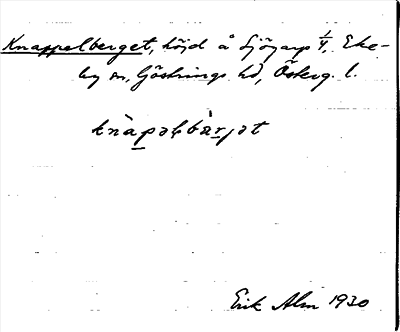 Knappelberget, höjd å Sjögarp 1/4, Eke-
by sn, Göstrings hd, Österg. l.
knàpəḷbàrjət
Erik Alm 1930